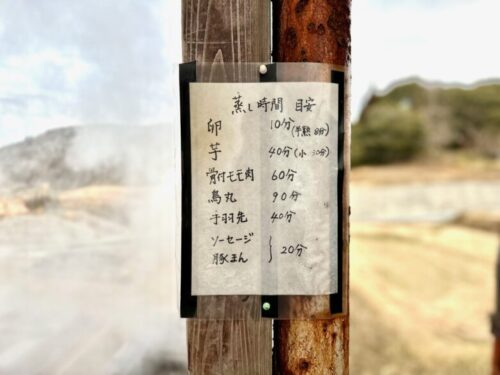 蒸し時間 目安
卵 10分(半熟 8分)
芋 40分(小 30分)
骨付モモ肉 60分
鳥丸 90分
手羽先 40分
ソーセージ
豚まん } 20分